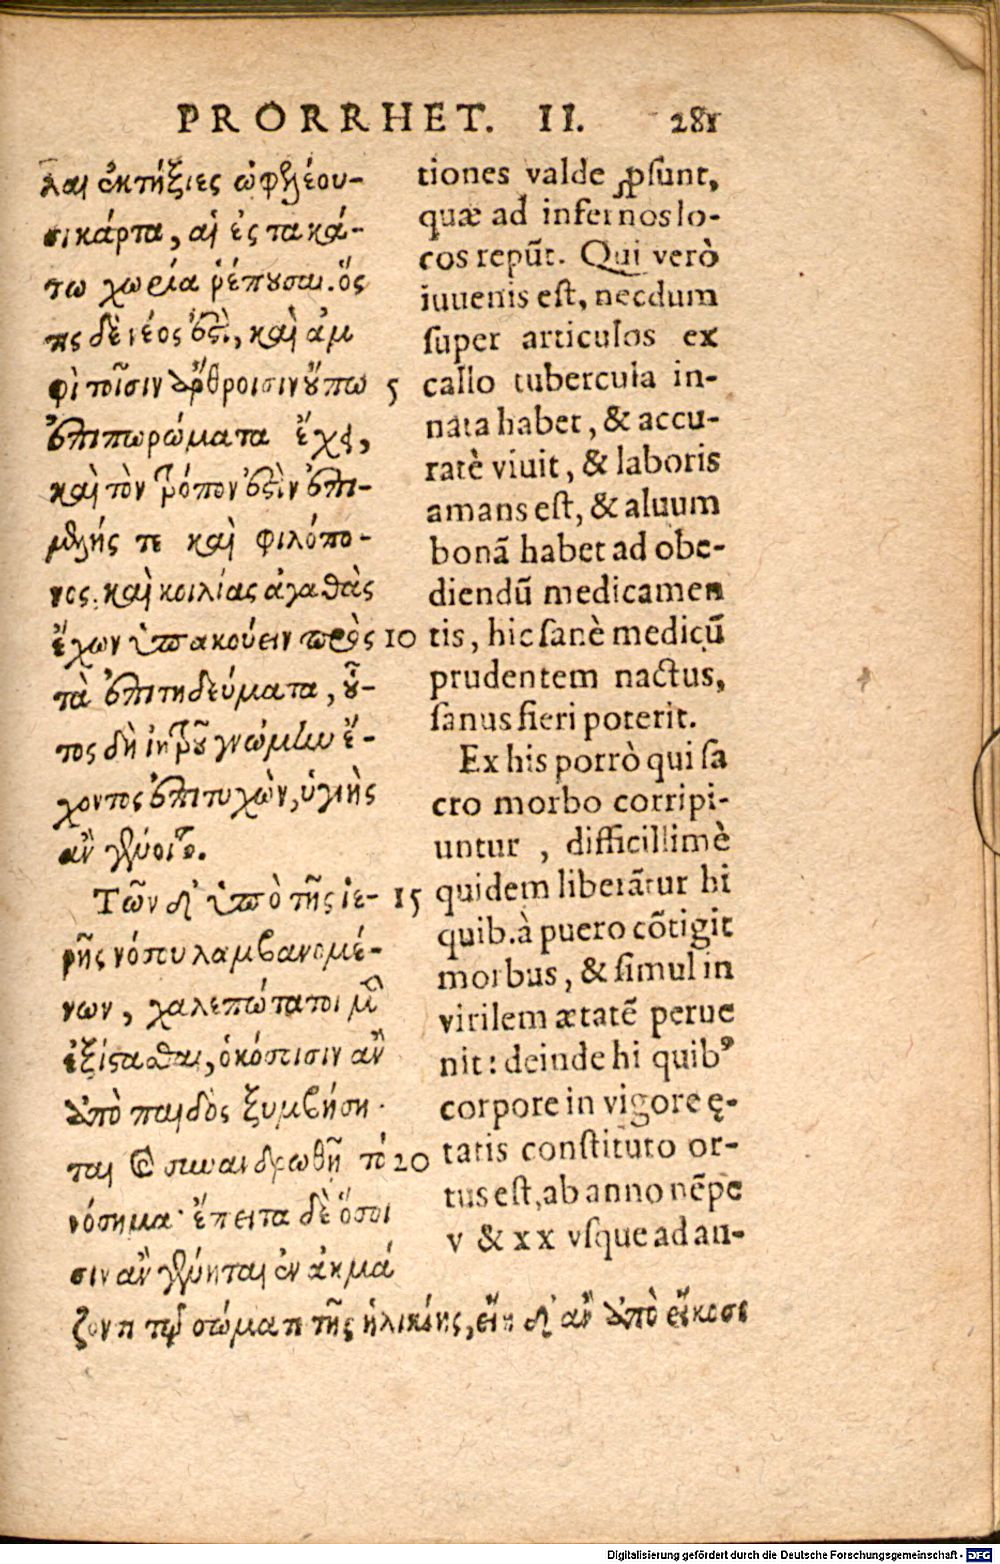 PRORRHET. II. 281
λαι ἐκτήξιες ὠφελέου-
σι κάρτα, αἱ ἐς τὰ κά-
τω χωρία ῥέπουσαι. ὅς
τις δὲ νέος ἐστὶ, καὶ ἀμ
φὶ τοῖσιν ἄρθροισιν οὔπω 5
ἐπιπωρώματα ἔχει,
καὶ τὸν τρόπον ἐστὶν ἐπι-
μελής τε καὶ φιλόπο-
νος, καὶ κοιλίας ἀγαθὰς
ἔχων ὑπακούειν πρὸς 10
τὰ ἐπιτηδεύματα, οὗ-
τος δὴ ἰητροῦ γνώμην ἔ-
χοντος ἐπιτυχὼν, ὑγιὴς
ἂν γένοιτο.
Τῶν δ' ὑπὸ τῆς ἱε- 15
ρῆς νόσου λαμβανομέ-
νων, χαλεπώτατοι μὲν
ἐξίστασθαι, ὁκόσοισιν ἂν
ἀπὸ παιδὸς ξυμβήση-
ται καὶ συνανδρωθῇ τὸ 20
νόσημα· ἔπειτα δὲ ὅσοι
σιν ἂν γένηται ἐν ἀκμά
ζοντι τῷ σώματι τῆς ἡλικίης, εἴη δ' ἂν ἀπὸ εἴκοσι
tiones valde ꝓsunt,
quæ ad infernos lo-
cos repũt. Qui verò
iuuenis est, necdum
super articulos ex
callo tubercula in-
nata habet, & accu-
ratè viuit, & laboris
amans est, & aluum
bonã habet ad obe-
diendũ medicamen
tis, hic sanè medicũ
prudentem nactus,
sanus fieri poterit.
Ex his porrò qui sa
cro morbo corripi-
untur, difficillimè
quidem liberãtur hi
quib. à puero cõtigit
morbus, & simul in
virilem ætatẽ perue
nit: deinde hi quibꝰ
corpore in vigore ę-
tatis constituto or-
tus est, ab anno nẽpe
v & xx vsque ad an-
Digitalisierung gefördert durch die Deutsche Forschungsgemeinschaft - DFG